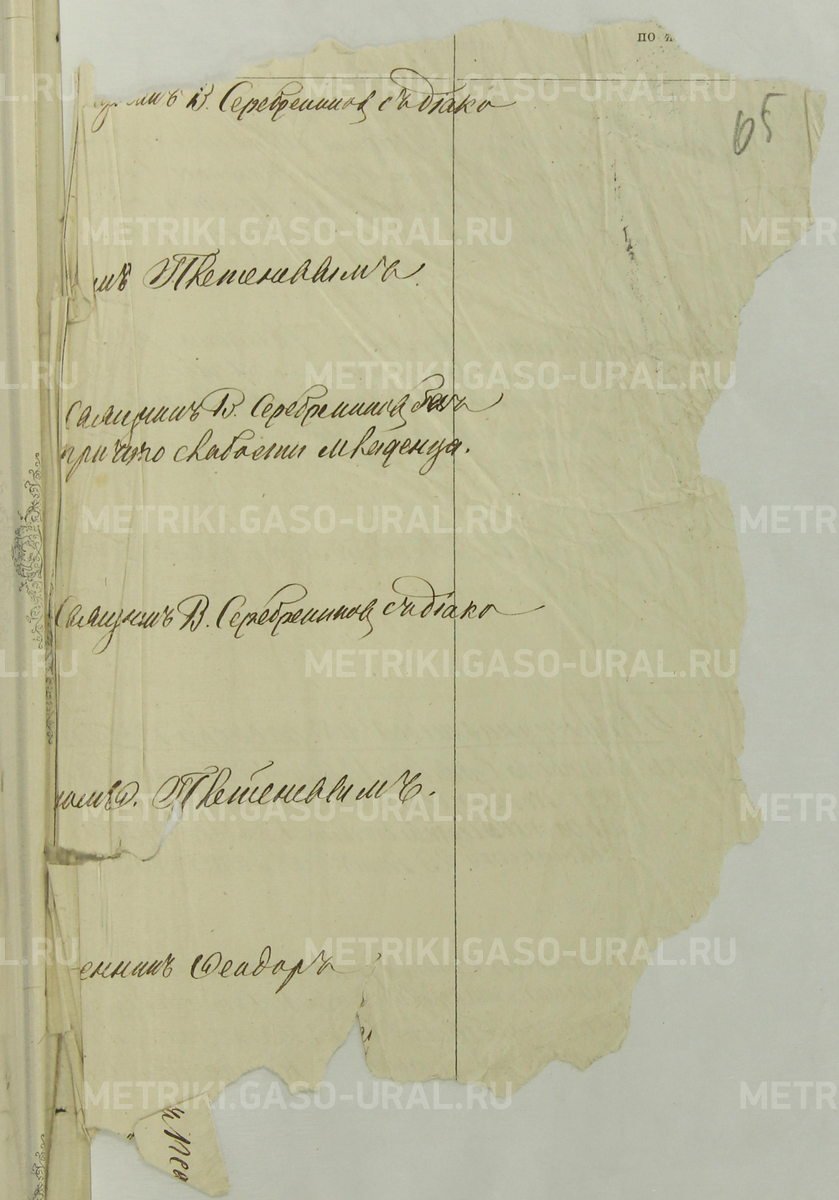 по
65
В. Серебрениковъ съ діако
мъ Плетеневымъ.
Священникъ В. Серебрениковъ безъ
причта слабости младенца.
Священникъ В. Серебрениковъ съ діако
номъ Ѳ. Плетеневымъ.
енникъ Ѳеодоръ
METRIKI.GASO-URAL.RU